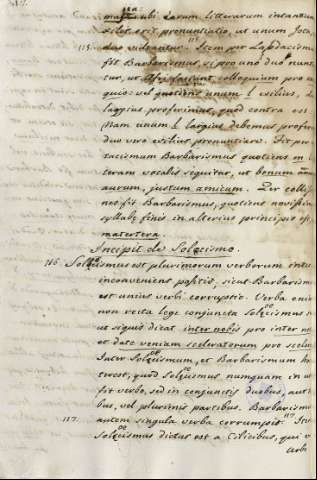 ma
ubi earum litterarum
exilet erit pronuntiatio, ut unum Jota,
duo videantur. 115. Item per Lapdacismum
fit Barbarismus, si pro uno duo nunc
tur, ut Afri faciunt, colloquium pro
quio: vel quotiens unum l exilius,
largius proferimus, quod contra est
Nam unum l largius debemus profer
duo vero exilius pronuntiare. Fit per
tacismum Barbarismus quotiens m li
teram vocalis sequitur, ut bonum
aurum, justum amicum. Per collisi
nes fit Barbarismus, quotiens novissim
syllabę finis in alterius principio est
matertera.
Incipit de Solęcismo.
116 Solęcismus est plurimorum verborum inter
inconveniens positis, sicut Barbarism
est unius verbi corruptio. Verba enim
non recta lege conjuncta Solęcismus
ut siquis dicat inter nobis pro inter no
et date veniam sceleratorum pro sceler
Inter Solęcismum, et Barbarismum h
terest, quod Solęcismus numquam in u
fit verbo, sed in conjunctis duobus, aut
bus, vel plurimis partibus. Barbarismu
autem singula verba corrumpit. 117
117. Solęcismus dictus est a Cilicibus, qui
urb